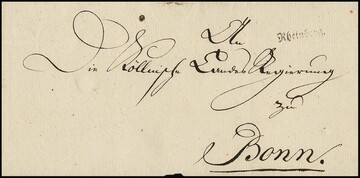 An
Rheinberg.
Die Cöllnische Landes Regierung
zu
Bonn.